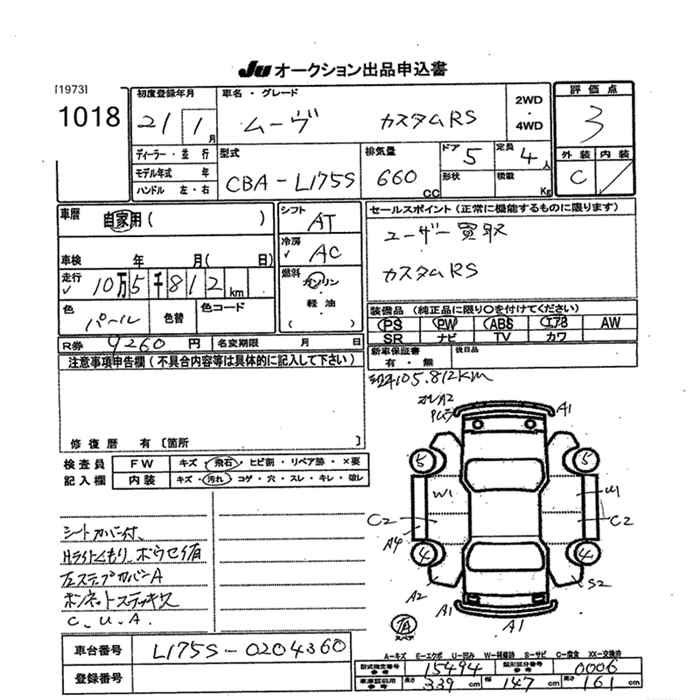 JU オークション出品申込書
[1973]
1018
初度登録年月
21 1 月
車名・グレード
ムーヴ カスタムRS
2WD
・
4WD
評価点
3
外装 内装
C
ディーラー・並行
モデル年式 年
ハンドル 左・右
型式
CBA-L175S
排気量
660 CC
ドア 5
形状
定員 4 人
積載 Kg
車歴 自家用( )
車検 年 月( 日)
走行 10万5千812 km
色 パール 色替 色コード
R券 9260 円 名変期限 月 日
シフト AT
冷房 AC
燃料 ガソリン
・
軽油
( )
セールスポイント(正常に機能するものに限ります)
ユーザー買取
カスタムRS
装備品(純正品に限り○を付けてください)
PS PW ABS エアB AW
SR ナビ TV カワ
新車保証書 有・無
後日品
注意事項申告欄(不具合内容等は具体的に記入して下さい)
修復歴 有〔箇所 〕
105.812km
検査員
記入欄
FW キズ・飛石・ヒビ割・リペア跡・×要
内装 キズ・汚れ・コゲ・穴・スレ・キレ・破レ
シートカバー付、
Hライトくもり、ボウセイ有
左ステップカバーA
ボンネットステッキズ
C、U、A、
A1
5
5
W1
W1
C2
C2
A4
4
4
A2
S2
A1
A1
TA
スペア
A-キズ E-エクボ U-凹み W-補修跡 S-サビ C-腐食 XX-交換済
車台番号 L175S-0204360
登録番号
型式指定番号 参考 15494 類別区分番号 参考 0006
車体寸法 参考 長さ 339 cm 幅 147 cm 高さ 161 cm